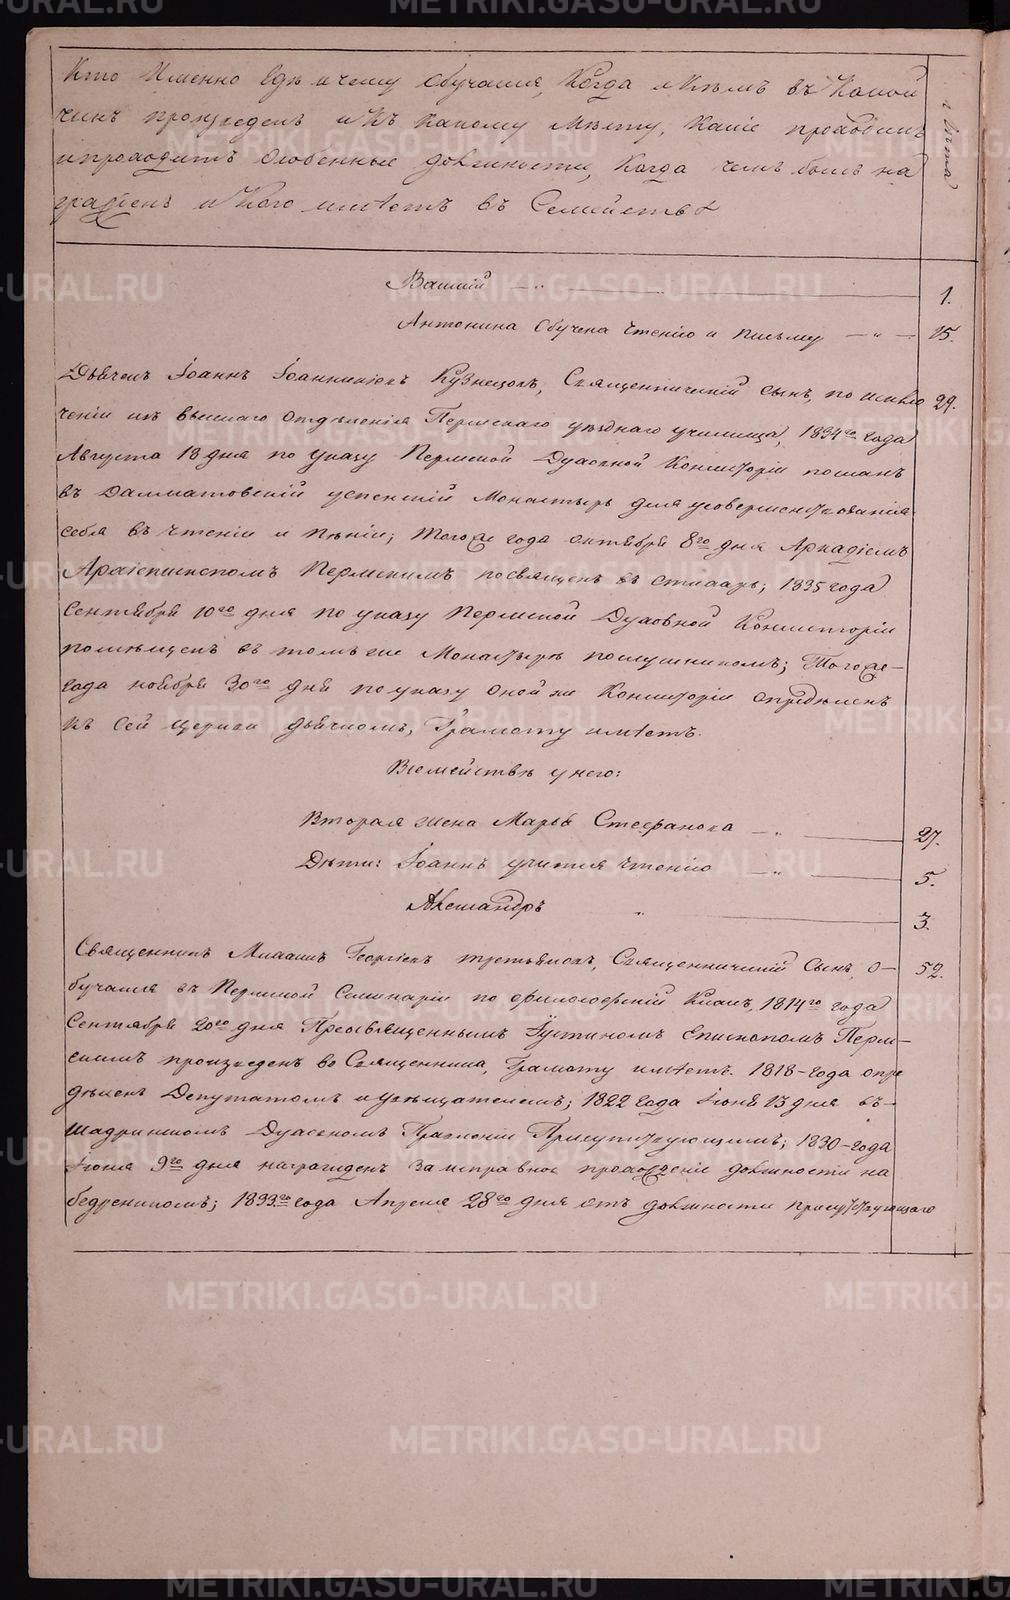 Кто Именно где и чему обучался, Когда и Кѣмъ въ Какой
чинъ произведенъ и Къ какому мѣсту, какіе проходилъ
и проходитъ Особенные должности, Когда чемъ былъ на
гражденъ и Кого имѣетъ въ Семействѣ
Лѣта
Василій — „ — 1.
Антонина Обучена чтенію и письму — „ — 15.
Дьячекъ Іоаннъ Іоанникіевъ Кузнецовъ, Священническій сынъ, по исклю 29.
ченіи изъ высшаго отдѣленія Пермскаго уѣзднаго училища, 1834го года
Августа 18 дня по указу Пермской Духовной Консисторіи посланъ
въ Далматовскій успенскій Монастырь для усовершенствованія
себя въ чтеніи и пѣніи; тогоже года октября 8го дня Аркадіемъ
Архіепископомъ Пермскимъ посвященъ въ стихарь; 1835 года
Сентября 10го дня по указу Пермской Духовной Консисторіи
помѣщенъ въ томъ же Монастырѣ послушникомъ; Тогоже-
года ноября 30го дня по указу оной же Консисторіи опредѣленъ
къ сей церкви дьячкомъ, Грамоту имѣетъ.
Всемействѣ у него:
Вторая жена Марья Стефанова — „ — 27.
Дѣти: Іоаннъ учится чтенію „ — 5.
Александръ „ — 3.
Священникъ Михаилъ Георгіевъ Третьяковъ, Священническій Сынъ, о- 52.
бучался въ Пермской Семинаріи по философскій Класъ, 1814го года
Сентября 20го дня Преосвященнымъ Іустиномъ Епископомъ Перм-
скимъ произведенъ во Священника, Грамоту имѣетъ. 1818-года опре
дѣленъ Депутатомъ и увѣщателемъ; 1822 года Іюня 13 дня въ-
Шадринскомъ Духовномъ Правленіи Присутствующимъ; 1830-года
Іюня 9го дня награжденъ за исправное прохожденіе должности на
бедренникомъ; 1833го года Апреля 28го дня отъ должности присутствующаго
METRIKI.GASO-URAL.RU